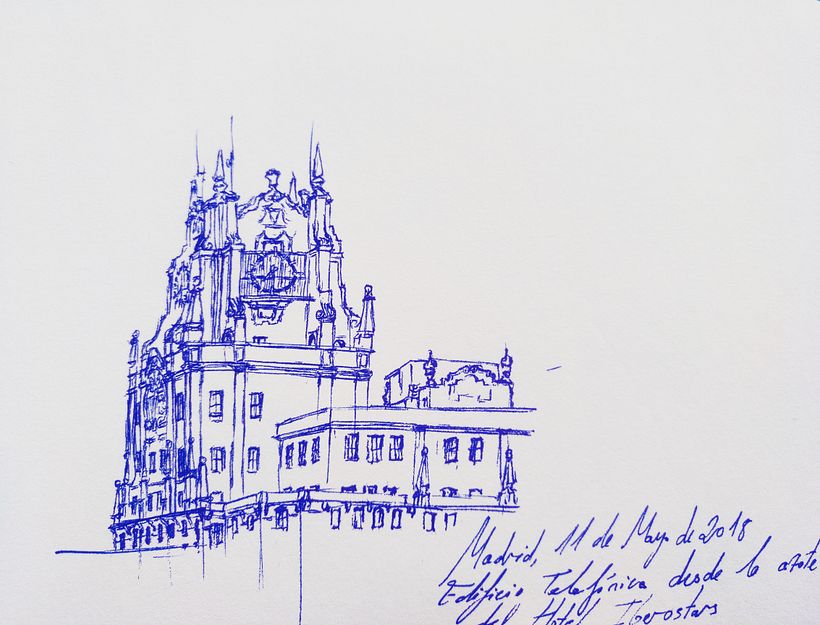 Madrid, 11 de Mayo de 2018
Edificio Telefónica desde la azote
del Hotel Iberostars